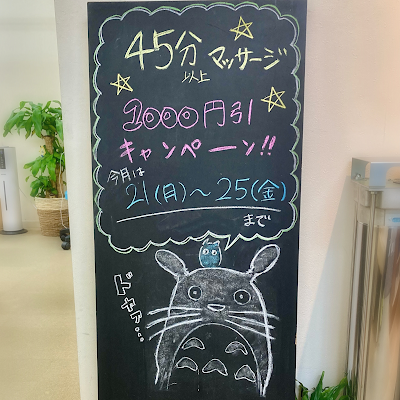 45分
以上
マッサージ
1000円引
キャンペーン!!
今月は
21(月)～25(金)
まで
ドキドキ...